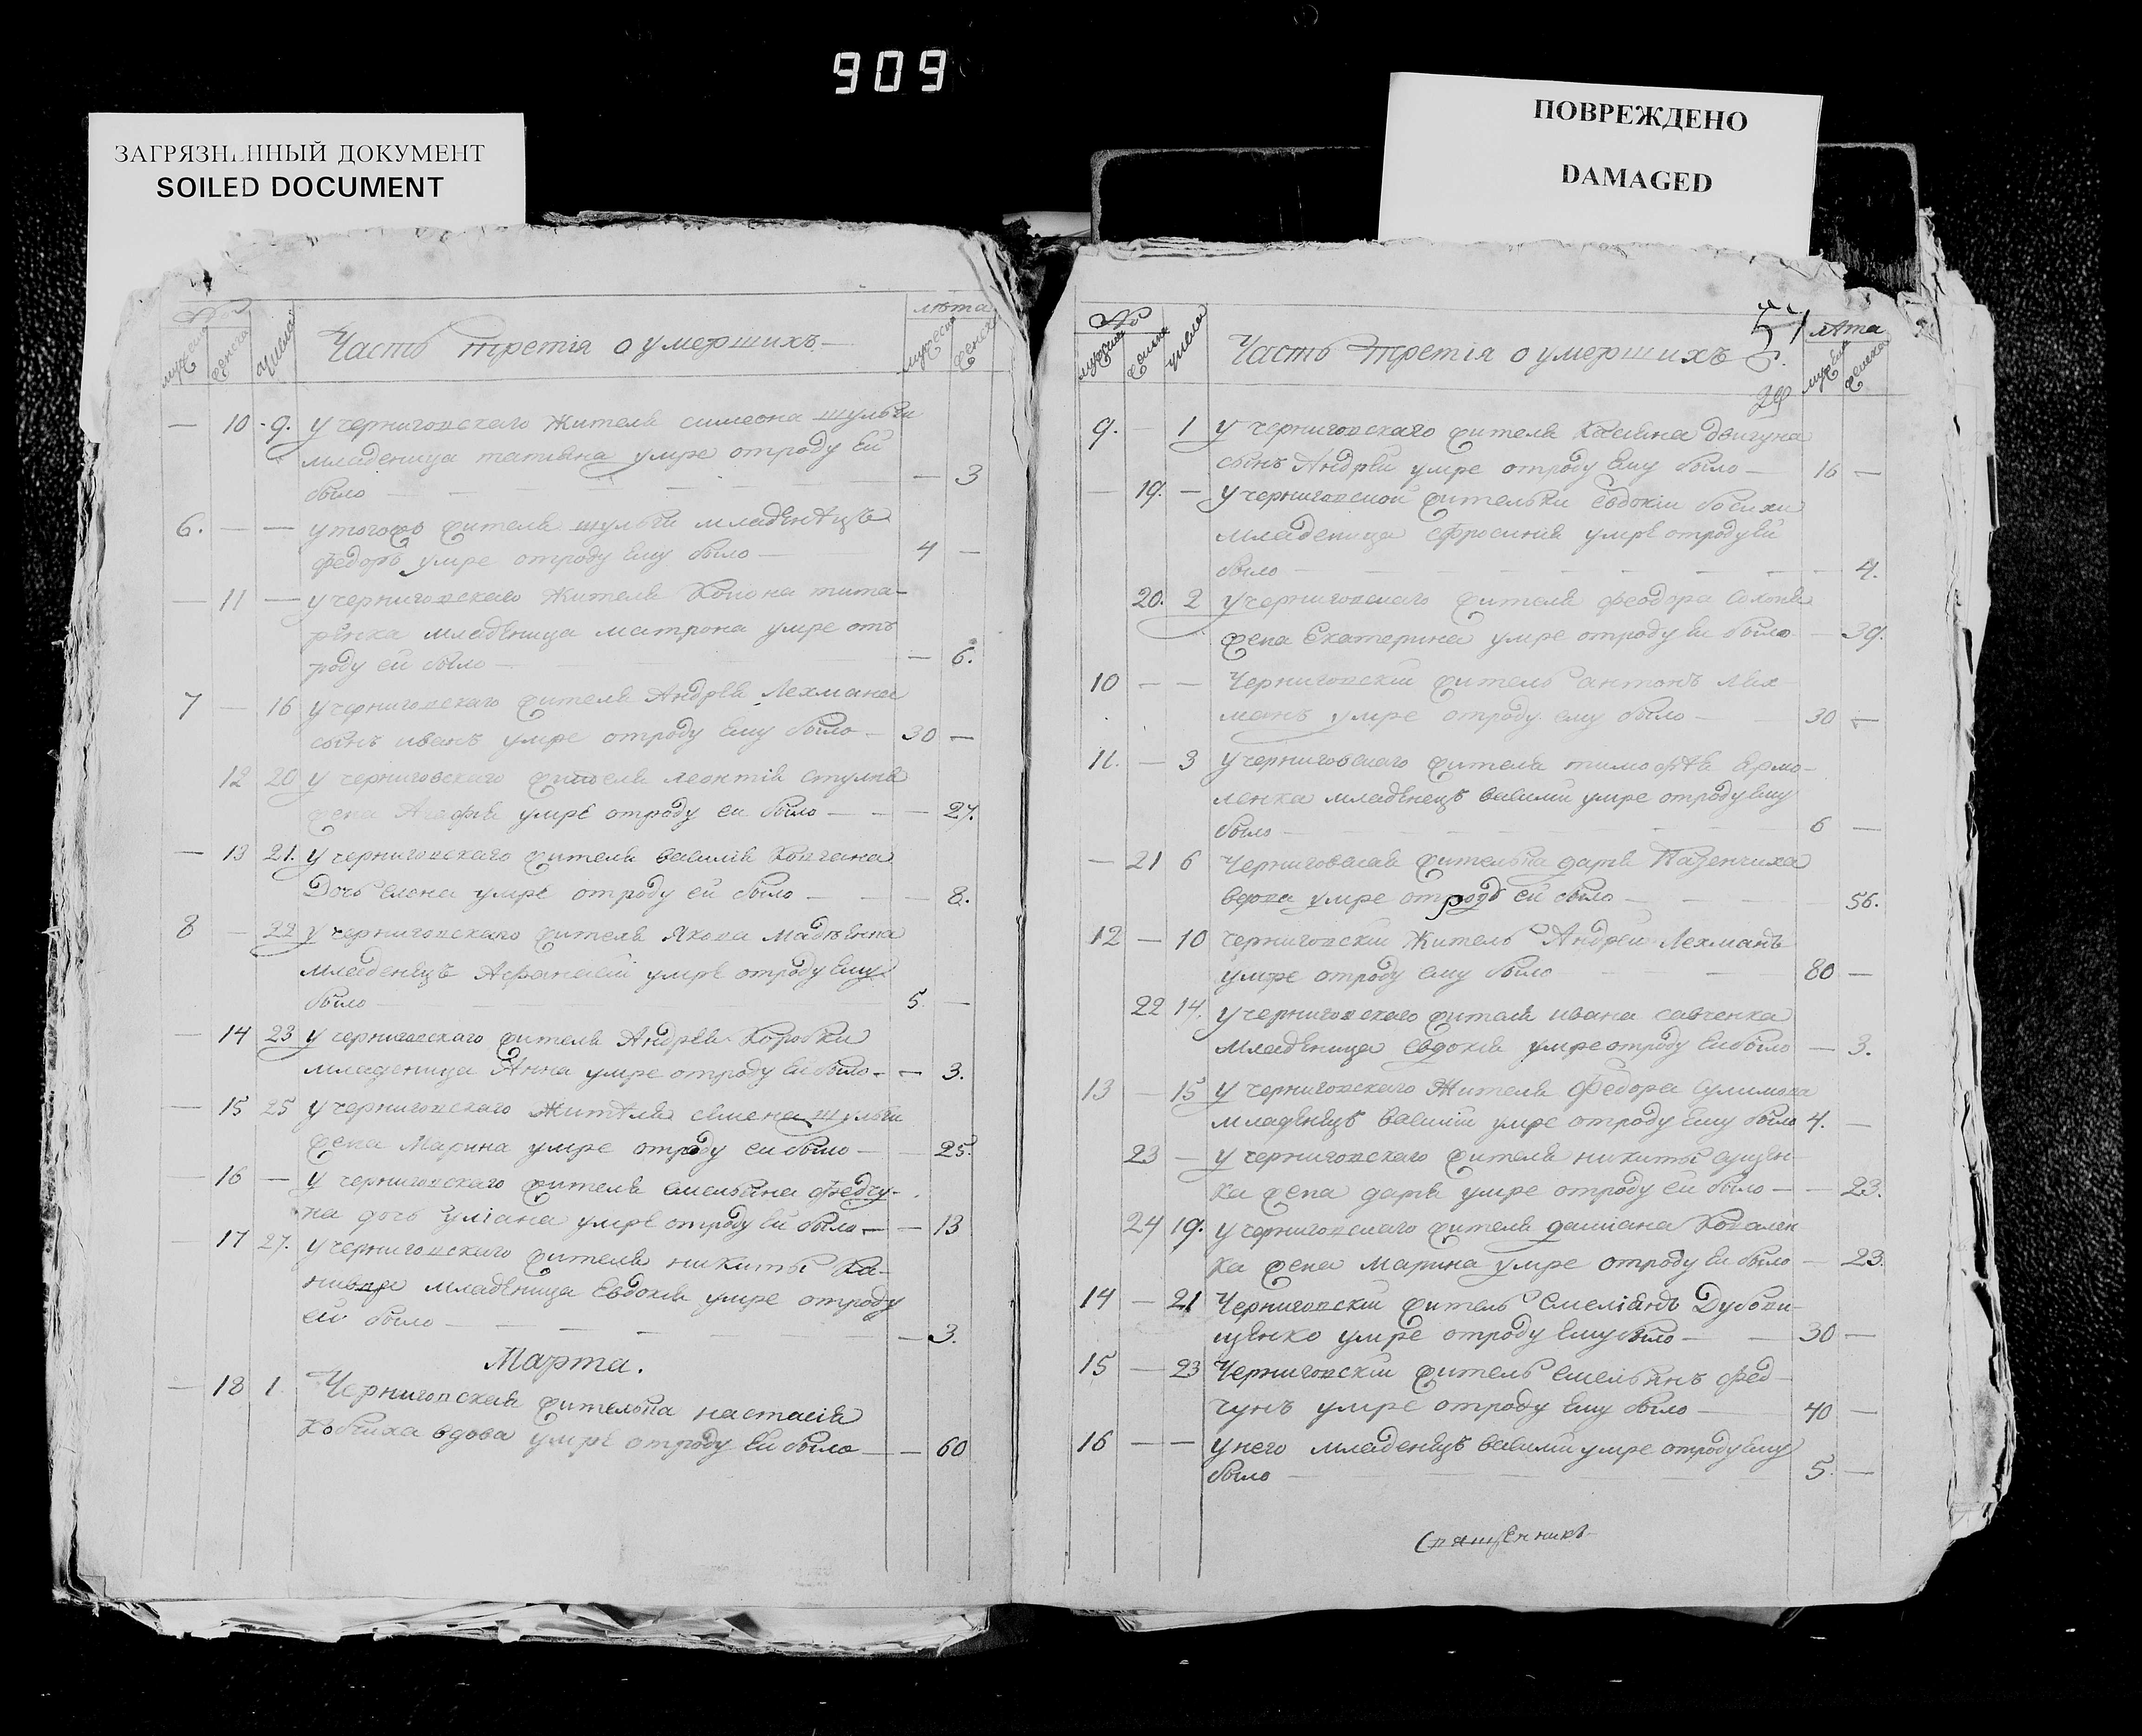 909
ЗАГРЯЗНЕННЫЙ ДОКУМЕНТ
SOILED DOCUMENT
ПОВРЕЖДЕНО
DAMAGED
№ мужеска женска числа
Часть третія о умершихъ
лѣта мужеска женска
— 10 9. у черниговскаго жителя симеона шульги
младеница татіяна умре отроду ей
было — — 3
6. — — у тогожъ жителя шульги младенецъ
федоръ умре отроду ему было — 4 —
— 11 — у черниговскаго жителя тита-
ренка младеница матрона умре отъ
роду ей было — — 6.
7 — 16 у черниговскаго жителя Андрея Лехмана
сынъ иванъ умре отроду ему было — 30 —
12 20 у черниговскаго жителя леонтія
жена Агафія умре отроду ей было — — 27.
— 13 21. у черниговскаго жителя василія
Дочь елена умре отроду ей было — — 8.
8 — 22 у черниговскаго жителя Якова
младенецъ Афанасій умре отроду ему
было — 5. —
— 14 23 у черниговскаго жителя Андрея Коробки
младеница Анна умре отроду ей было — — 3.
— 15 25 у черниговскаго жителя семена шульги
жена Марина умре отроду ей было — — 25.
— 16 — у черниговскаго жителя емельяна федчу-
на дочь уліана умре отроду ей было — — 13
— 17 27. у черниговскаго жителя никиты Ка-
младеница Евдокія умре отроду
ей было — — 3.
Марта.
— 18 1. Черниговская жителька настасія
вдова умре отроду ей было — — 60
57
№ мужеска женска числа
Часть третія о умершихъ
лѣта мужеска женска
29
9. — 1 у черниговскаго жителя Касіяна двигуна
сынъ Андрей умре отроду ему было — 16 —
— 19. — у черниговской жительки евдокіи
младеница ефросинія умре отроду ей
было — — 4.
20. 2 у черниговскаго жителя феодора
жена Екатерина умре отроду ей было — 39.
10 — — Черниговскій житель антонъ лех
манъ умре отроду ему было — 30 —
11. — 3 у черниговскаго жителя тимофѣя ермо-
ленка младенецъ василій умре отроду ему
было — 6 —
— 21 6 Черниговская жителька дарія Пазенчиха
вдова умре отроду ей было — 56.
12 — 10 черниговскій житель Андрей Лехманъ
умре отроду ему было — 80 —
22 14. у черниговскаго жителя ивана савченка
младеница евдокія умре отроду ей было — 3.
13 — 15 у черниговскаго жителя Федора Сулимова
младенецъ василій умре отроду ему было 4. —
23 — у черниговскаго жителя никиты сущен-
ка жена дарія умре отроду ей было — — 23.
24 19. у черниговскаго жителя даміана Ковален
ка жена Марина умре отроду ей было — 23.
14 — 21 Черниговскій житель емеліянъ Дубови-
щенко умре отроду ему было — 30 —
15 — 23 Черниговскій житель емельянъ фед-
чунъ умре отроду ему было — 40 —
16 — — у него младенецъ василій умре отроду ему
было — 5. —
Священникъ